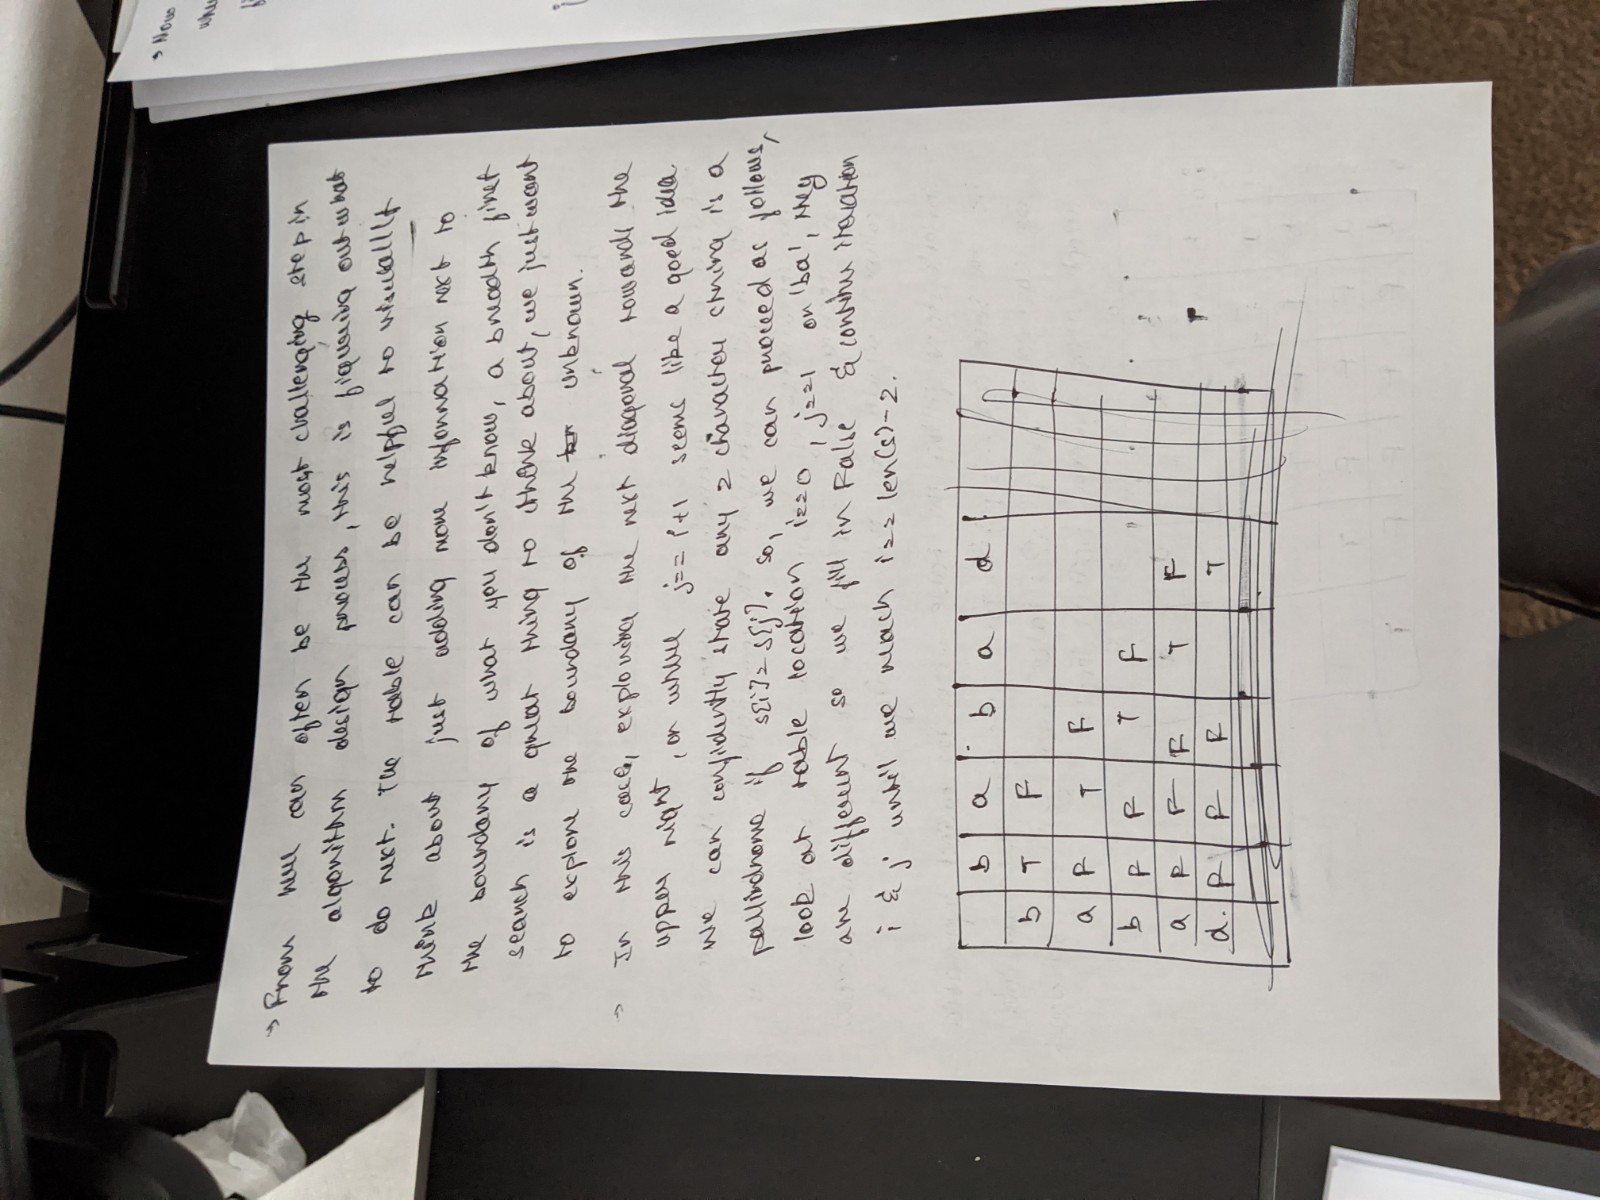 → Now
→ From here can often be the most challenging step in
the algorithm design process, this is figuring out what
to do next. The table can be helpful to visually
think about just adding more information next to
the boundary of what you don't know, a breadth first
search is a great thing to think about, we just want
to explore the boundary of the unknown.
→ In this case, exploring the next diagonal towards the
upper right, or where j==i+1 seems like a good idea
We can confidently state any 2 character string is a
pallindrome if s[i]=s[j]. So, we can proceed as follows,
look at table location i==0, j==1 or 'ba', they
are different so we fill in False & continue iteration
i & j until we reach i== len(s)-2.
b a b a d
b T F
a F T F
b F F T F
a F F F T F
d. F F F T